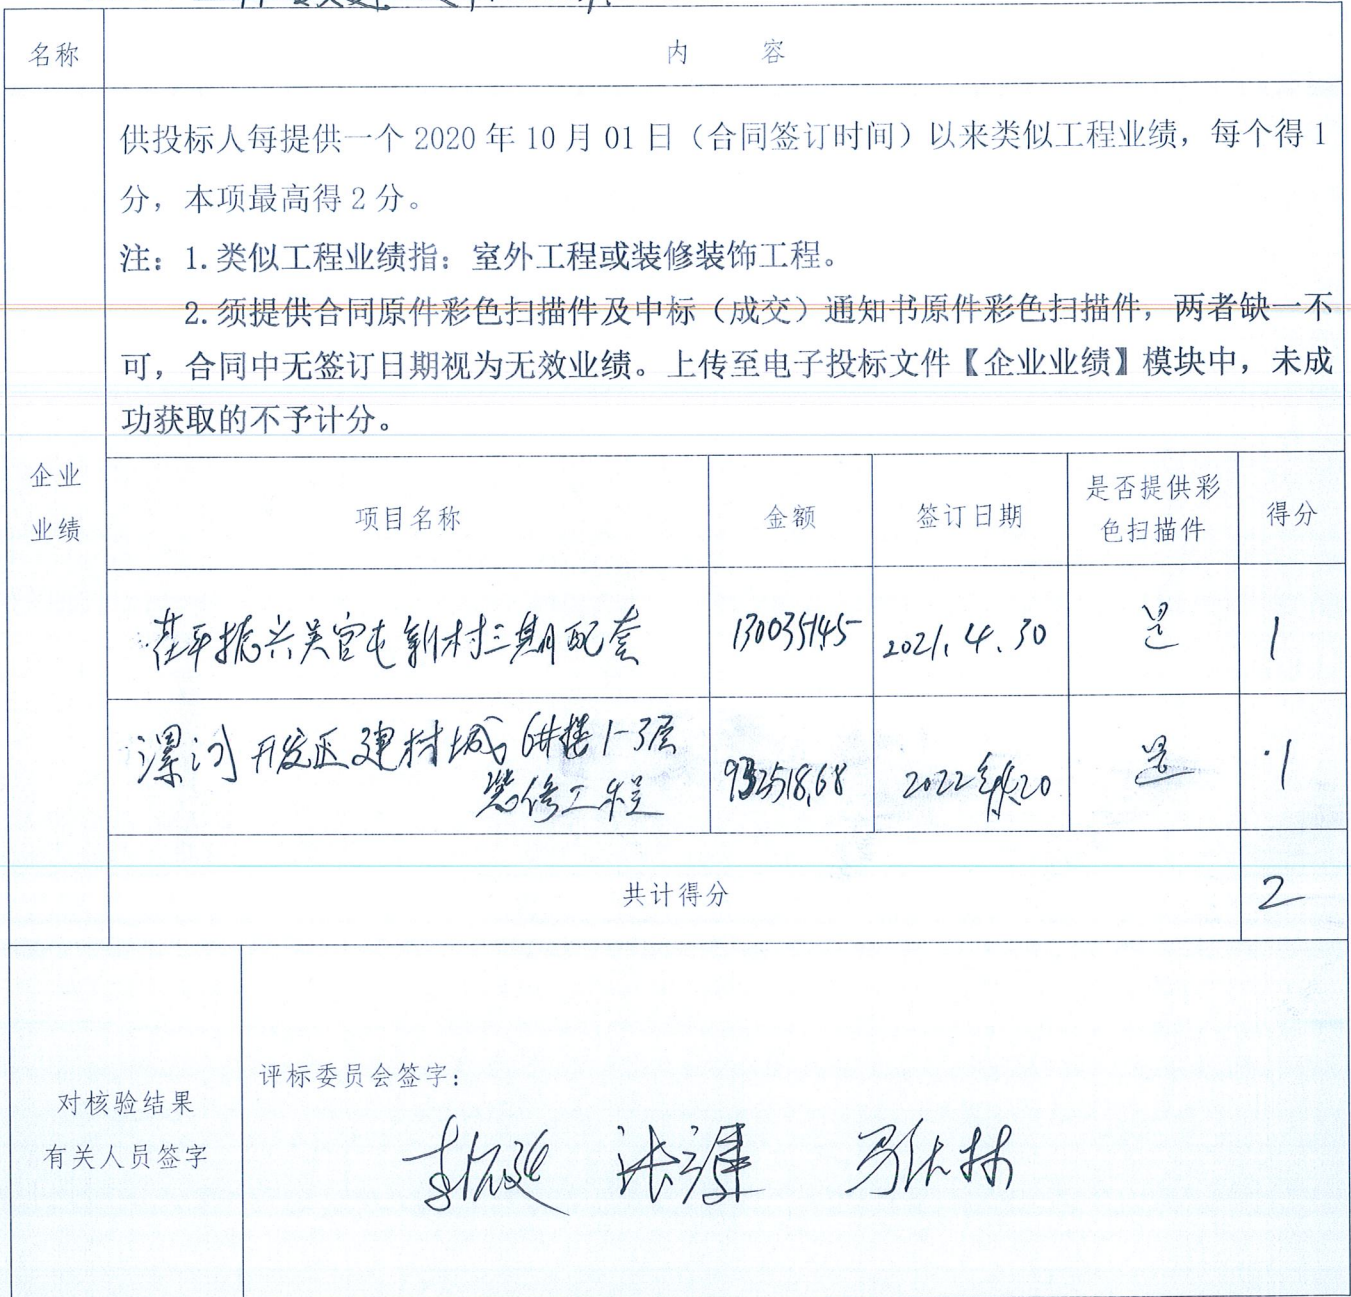 名称
内 容
供投标人每提供一个 2020 年 10 月 01 日（合同签订时间）以来类似工程业绩，每个得 1
分，本项最高得 2 分。
注：1. 类似工程业绩指：室外工程或装修装饰工程。
2. 须提供合同原件彩色扫描件及中标（成交）通知书原件彩色扫描件，两者缺一不
可，合同中无签订日期视为无效业绩。上传至电子投标文件【企业业绩】模块中，未成
功获取的不予计分。
企业
业绩
项目名称
金额
签订日期
是否提供彩
色扫描件
得分
茌平振兴吴官屯新村三期配套
2021.4.30
是
1
漯河开发区建材城6#楼1-3层
装修工程
是
1
共计得分
2
对核验结果
有关人员签字
评标委员会签字：